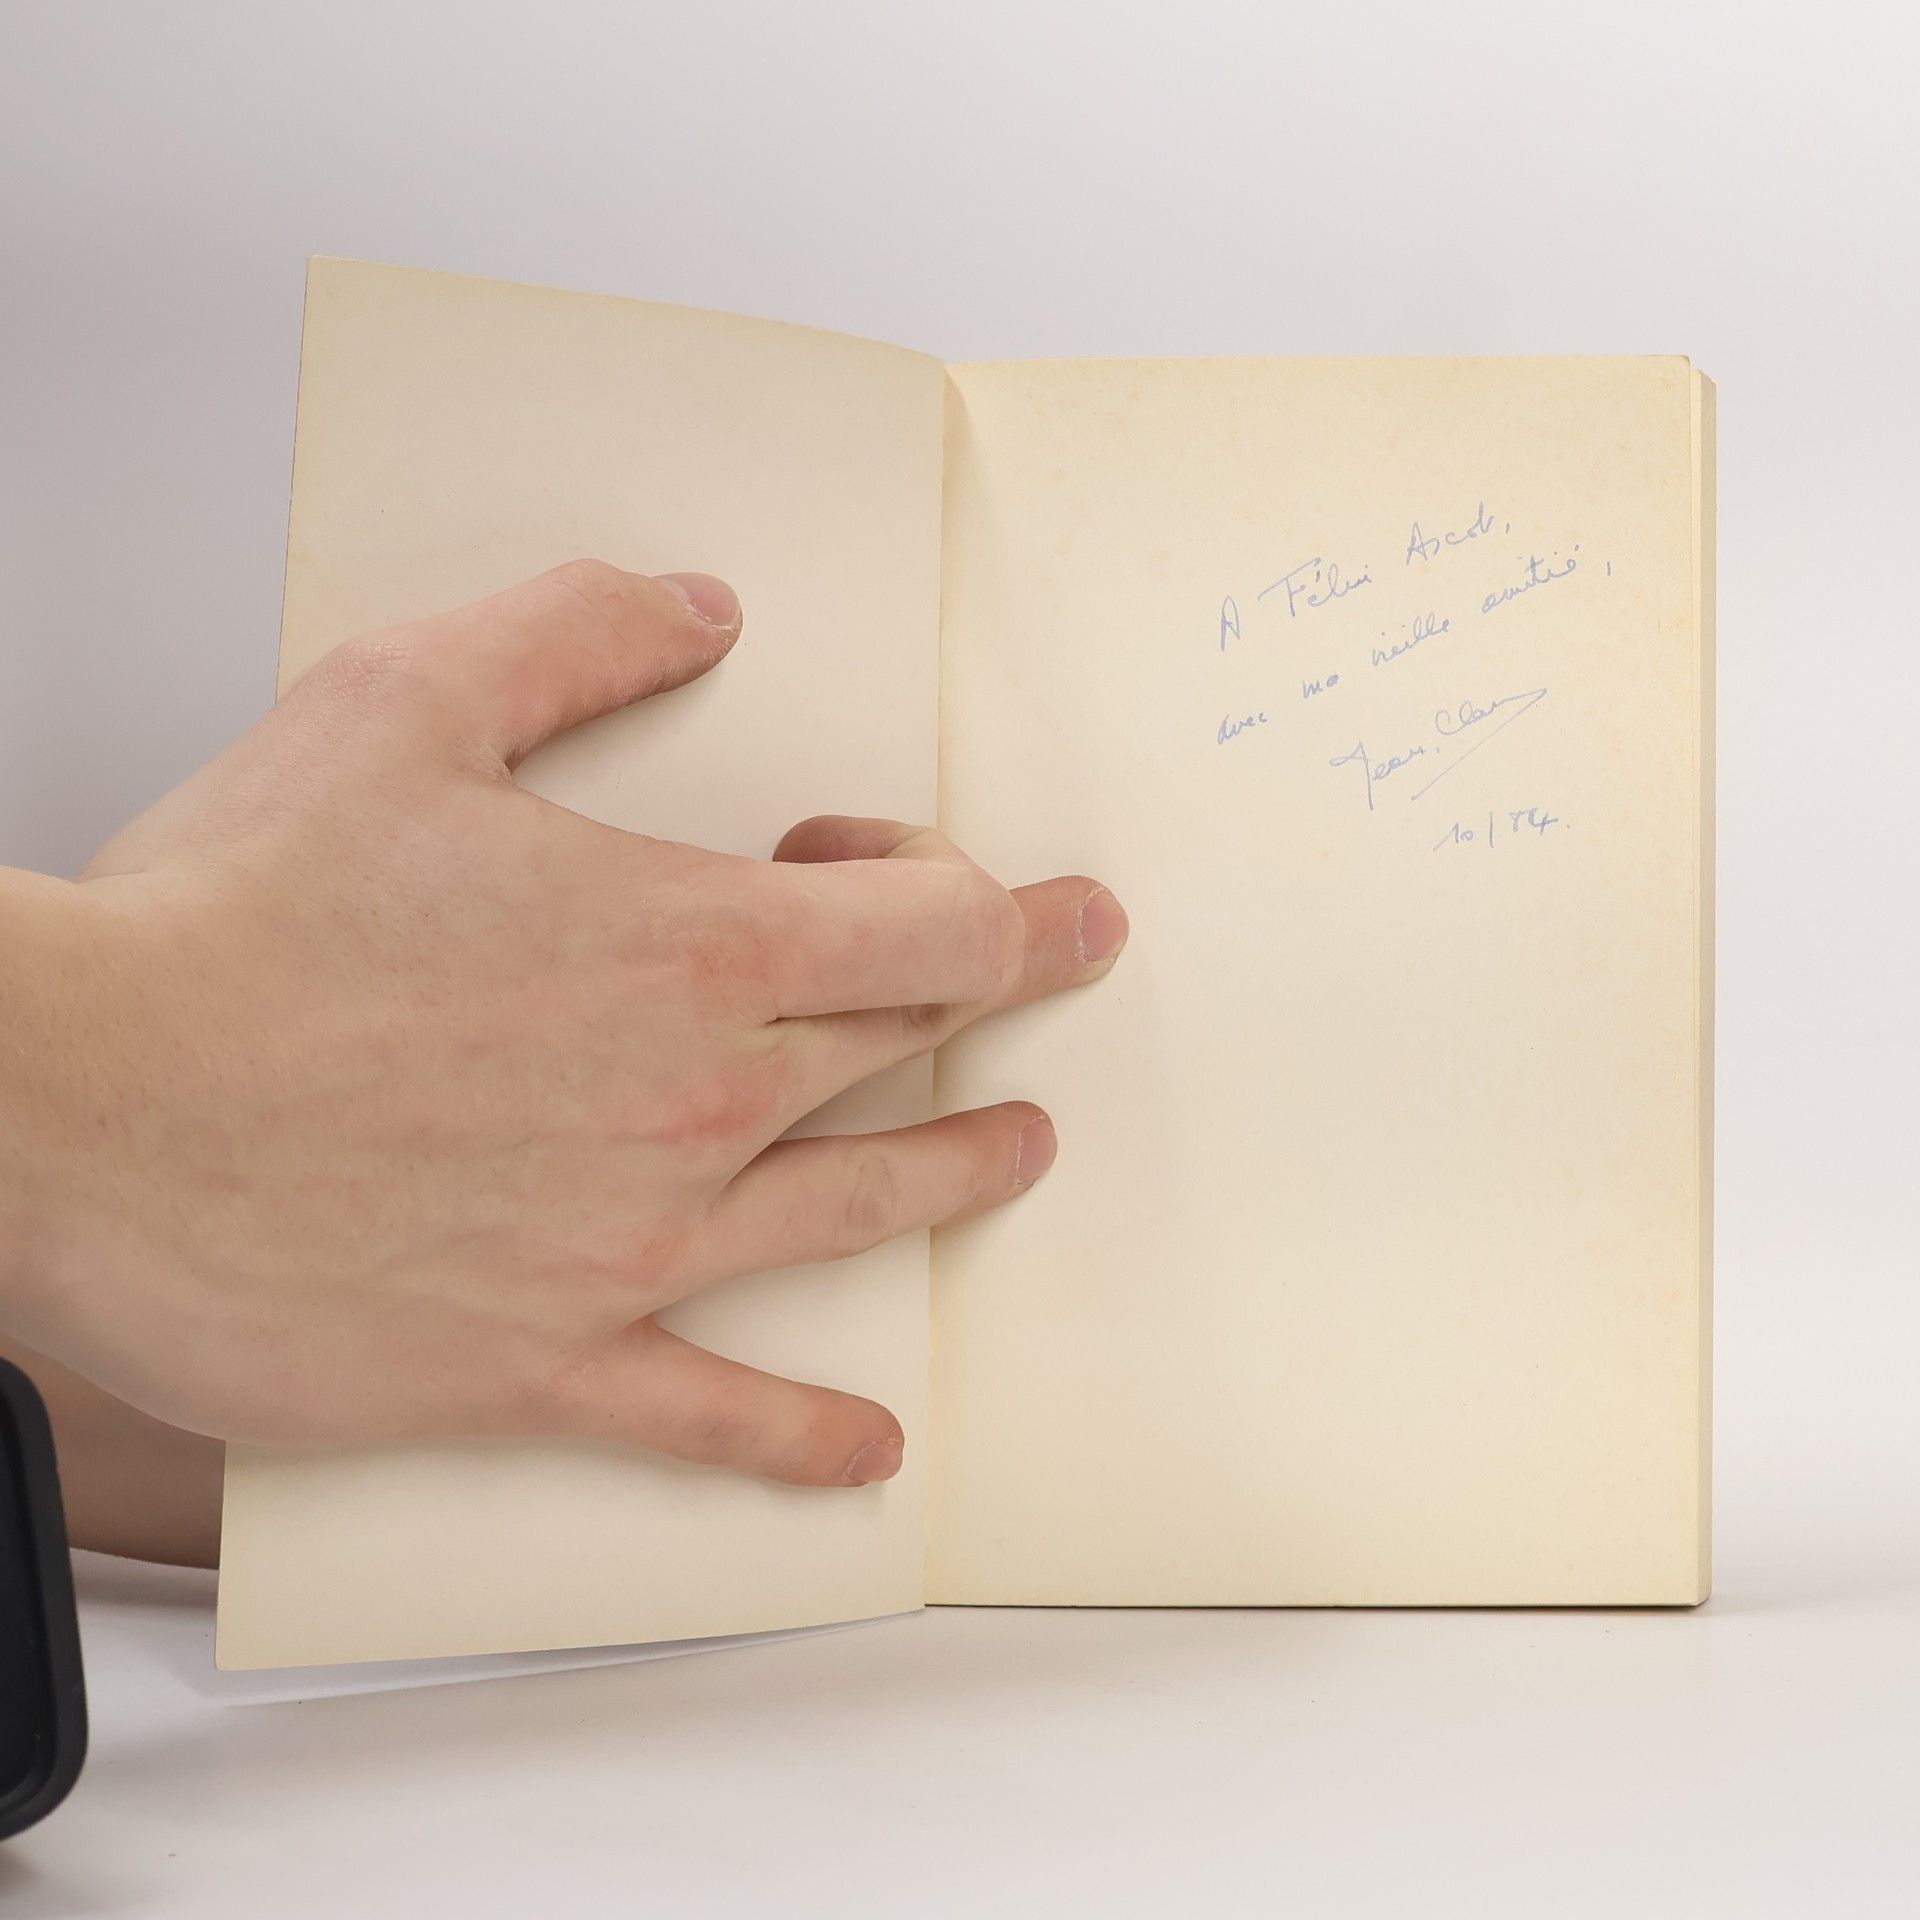 A Félix Ascot,
avec ma vieille amitié,
Jean. Clair
10/84.